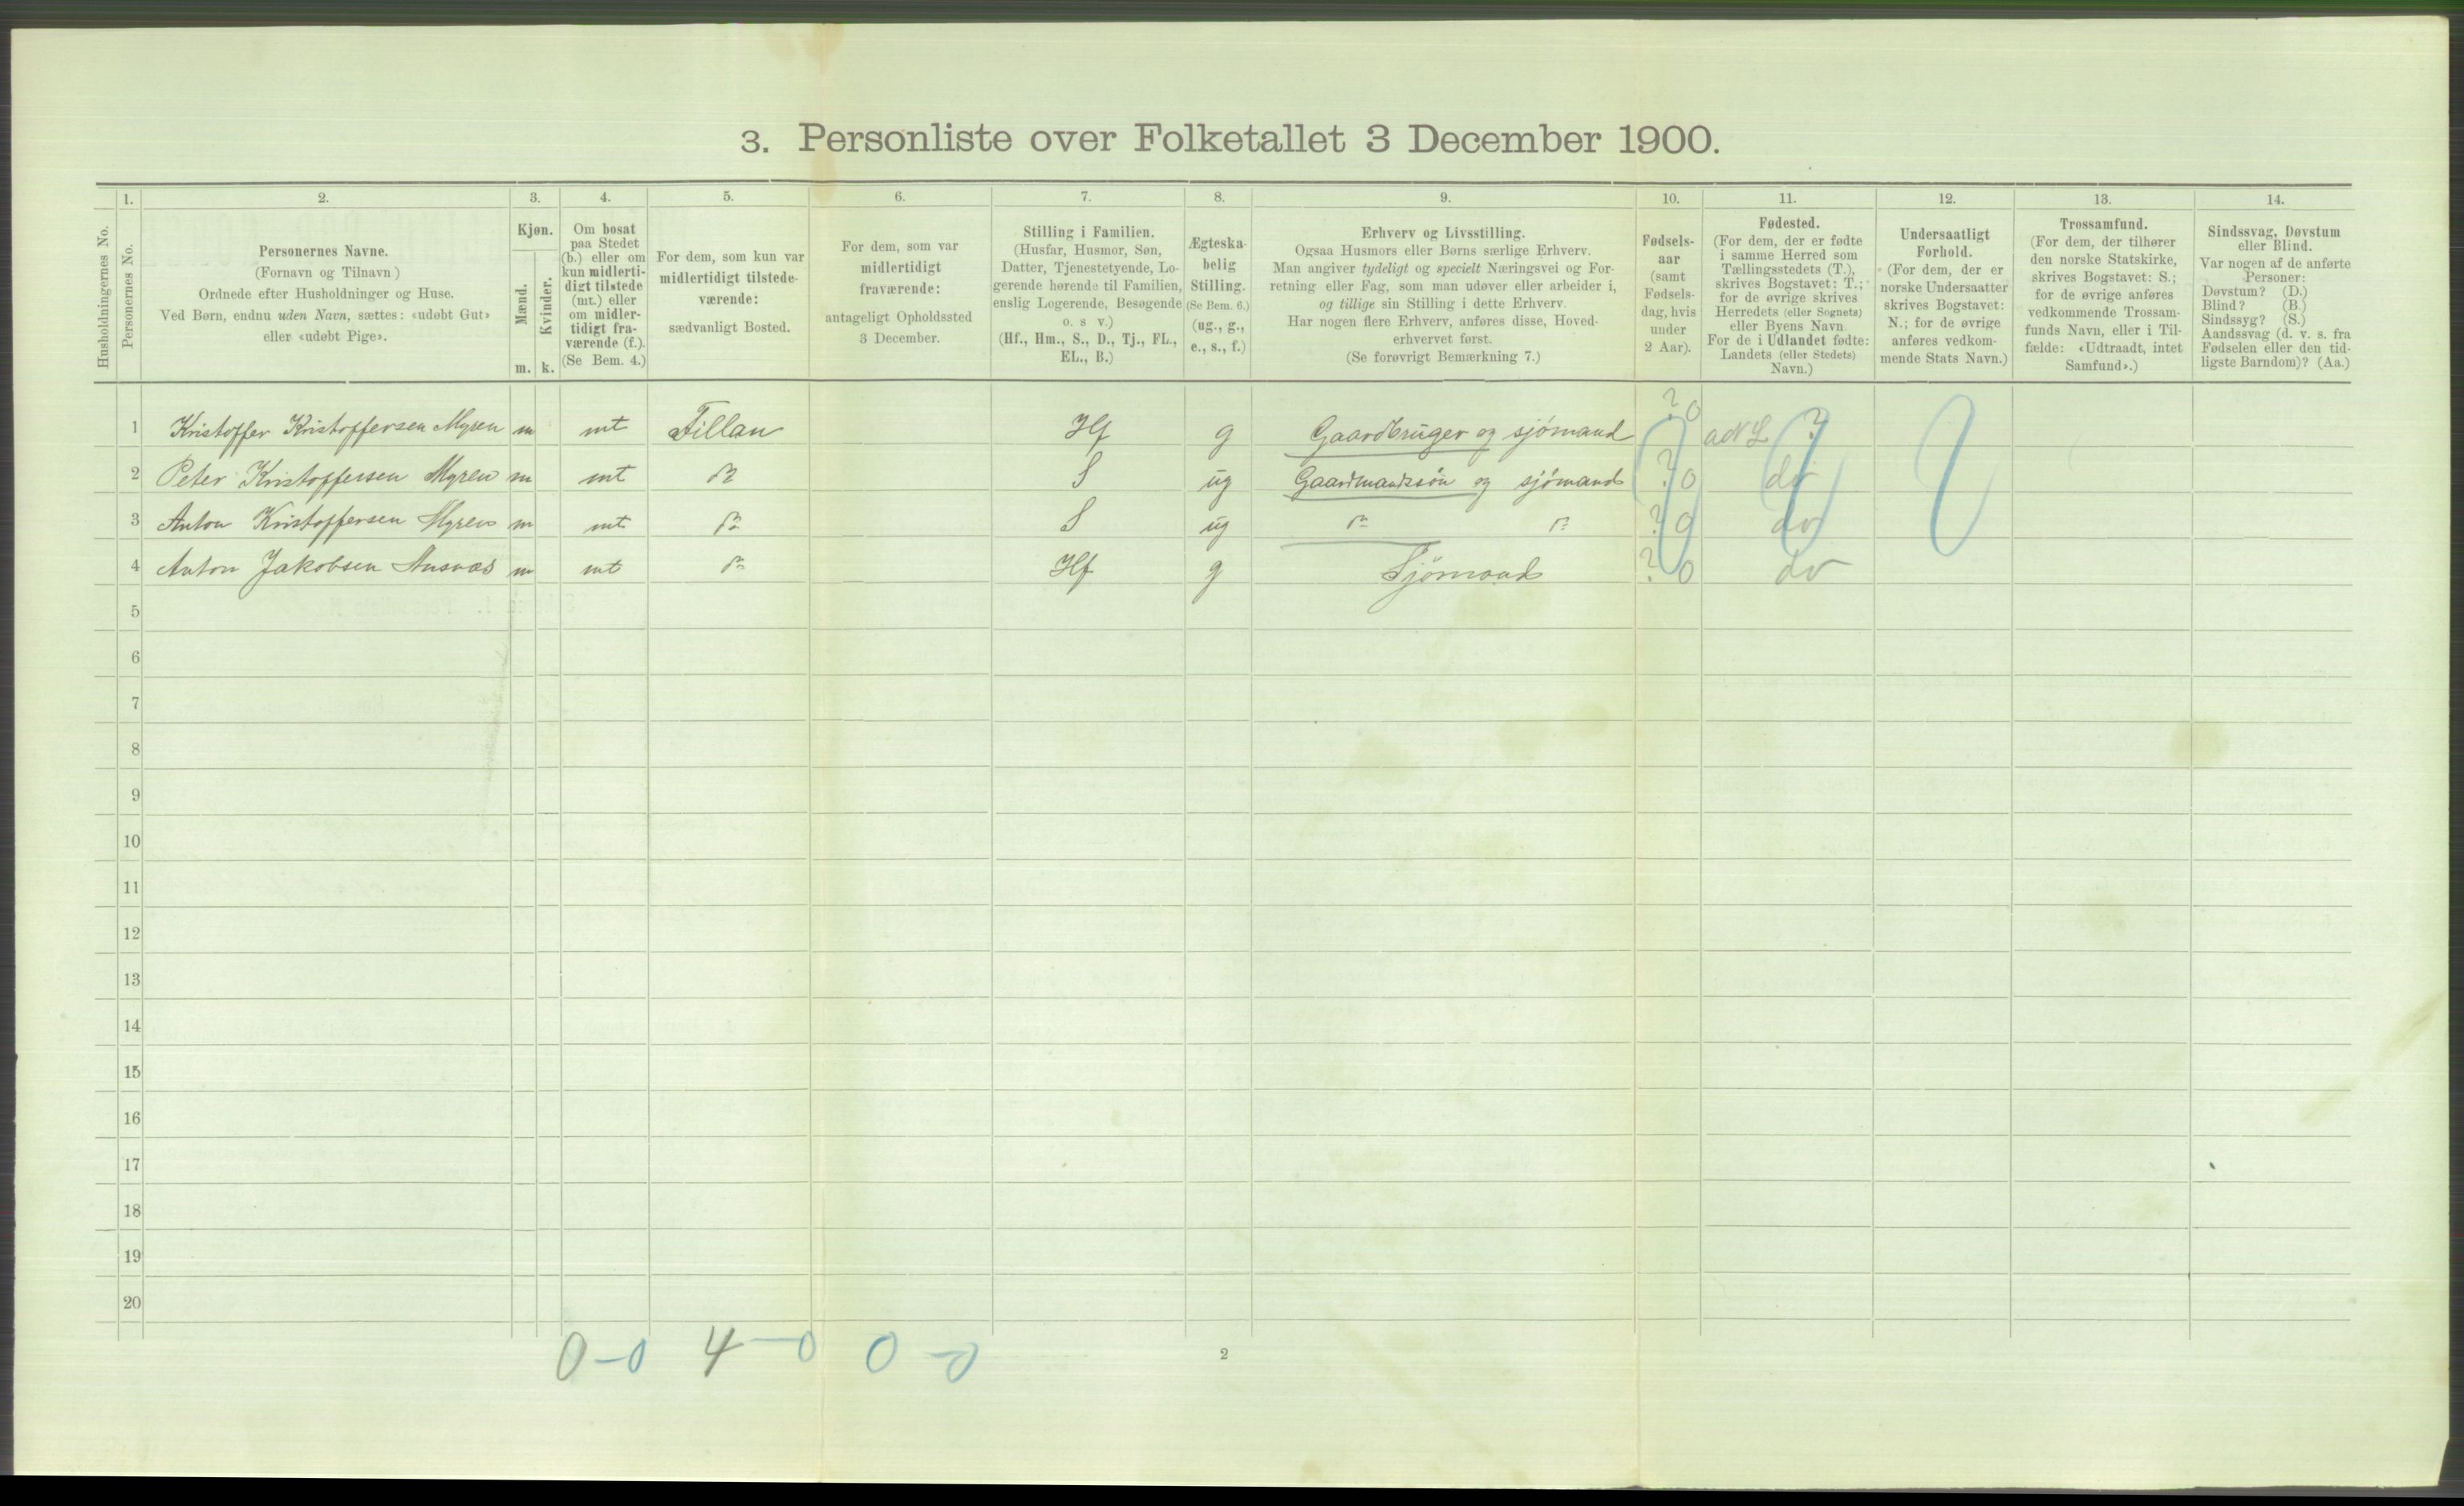 3. Personliste over Folketallet 3 December 1900.
Husholdningernes No.
1.
Personernes No.
2.
Personernes Navne.
(Fornavn og Tilnavn)
Ordnede efter Husholdninger og Huse.
Ved Børn, endnu uden Navn, sættes: «udøbt Gut»
eller «udøbt Pige».
3.
Kjøn.
Mænd.
Kvinder.
m. k.
4.
Om bosat
paa Stedet
(b.) eller om
kun midlerti-
digt tilstede
(mt.) eller
om midler-
tidigt fra-
værende (f.).
(Se Bem. 4.)
5.
For dem, som kun var
midlertidigt tilstede-
værende:
sædvanligt Bosted.
6.
For dem, som var
midlertidigt
fraværende:
antageligt Opholdssted
3 December.
7.
Stilling i Familien.
(Husfar, Husmor, Søn,
Datter, Tjenestetyende, Lo-
gerende hørende til Familien,
enslig Logerende, Besøgende
o. s v.)
(Hf., Hm., S., D., Tj., FL.,
EL., B.)
8.
Ægteska-
belig
Stilling.
(Se Bem. 6.)
(ug., g.,
e., s., f.)
9.
Erhverv og Livsstilling.
Ogsaa Husmors eller Børns særlige Erhverv.
Man angiver tydeligt og specielt Næringsvei og For-
retning eller Fag, som man udøver eller arbeider i,
og tillige sin Stilling i dette Erhverv.
Har nogen flere Erhverv, anføres disse, Hoved-
erhvervet først.
(Se forøvrigt Bemærkning 7.)
10.
Fødsels-
aar
(samt
Fødsels-
dag, hvis
under
2 Aar).
11.
Fødested.
(For dem, der er fødte
i samme Herred som
Tællingsstedets (T.),
skrives Bogstavet: T.;
for de øvrige skrives
Herredets (eller Sognets)
eller Byens Navn.
For de i Udlandet fødte:
Landets (eller Stedets)
Navn.)
12.
Undersaatligt
Forhold.
(For dem, der er
norske Undersaatter
skrives Bogstavet:
N.; for de øvrige
anføres vedkom-
mende Stats Navn.)
13.
Trossamfund.
(For dem, der tilhører
den norske Statskirke,
skrives Bogstavet: S.;
for de øvrige anføres
vedkommende Trossam-
funds Navn, eller i Til-
fælde: «Udtraadt, intet
Samfund».)
14.
Sindssvag, Døvstum
eller Blind.
Var nogen af de anførte
Personer:
Døvstum? (D.)
Blind? (B.)
Sindssyg? (S.)
Aandssvag (d. v. s. fra
Fødselen eller den tid-
ligste Barndom)? (Aa.)
1 Kristoffer Kristoffersen Myren m mt Fillan Hf g Gaardbruger og sjömand ? 0 ?
2 Peter Kristoffersen Myren m mt S ug Gaardmandssön og sjömand ? 0 do
3 Anton Kristoffersen Myren m mt S ug ? 0 do
4 Anton Jakobsen m mt Hf g Sjömand ? 0 do
5
6
7
8
9
10
11
12
13
14
15
16
17
18
19
20
0-0 4-0 0-0
2